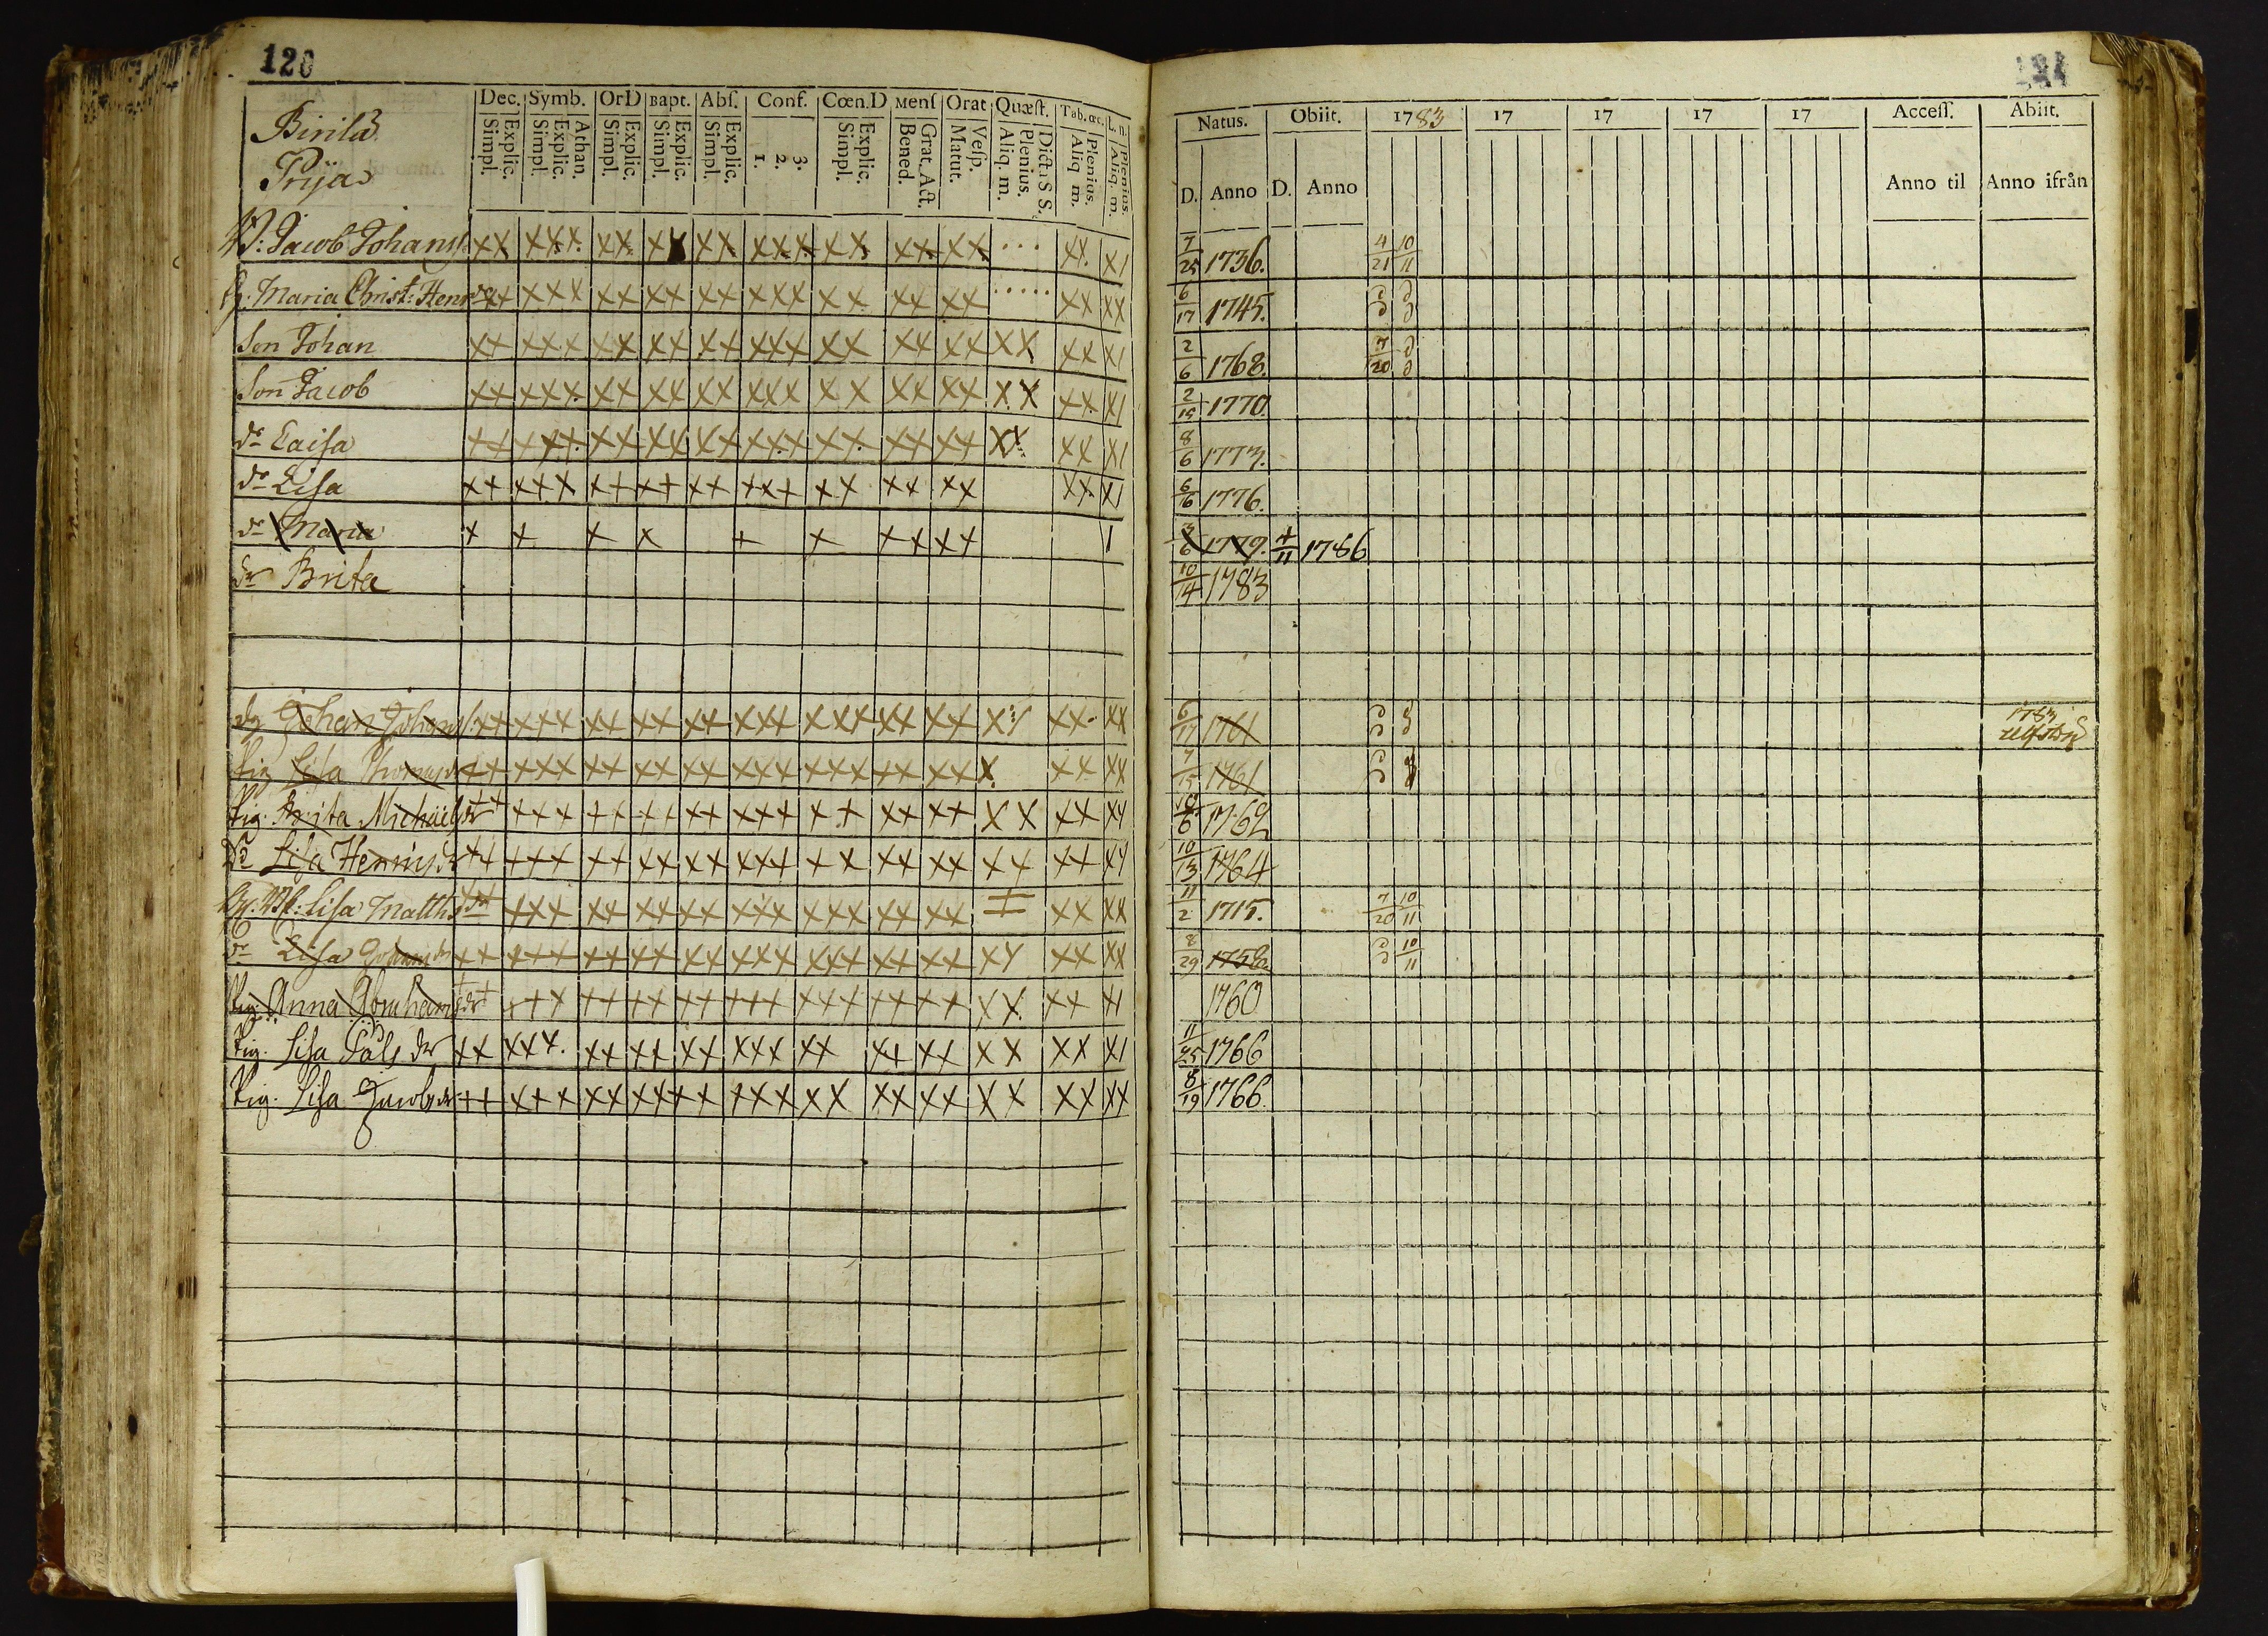 120
Birilä
Prÿa
Dec. Symb. OrD Bapt. Abſ. Conf. Cœn.D Menſ Orat Quæſt. Tab.œc. L. n.
Explic. Simpl. Athan. Explic. Simpl. Explic. Simpl. Explic. Simpl. Explic. Simpl. 3. 2. 1. Explic. Simpl. Grat. Act. Bened. Veſp. Matut. Dicta S S. Plenius. Aliq. m. Plenius. Aliq m. Plenius. Aliq. m.
Natus. Obiit. 1783 17 17 17 17 Acceſſ. Abiit.
D. Anno D. Anno Anno til Anno ifrån
Jacob Johansſ. xx xxx xx xx xx xxx xx xx xx .... xx x/ 7/25 1736. 4/21 10/11
Maria Christ: Henr xx xxx xx xx xx xxx xx xx xx ..... xx xx 6/17 1745.
Son Johan xx xxx xx xx xx xxx xx xx xx xx xx x/ 2/6 1768. 7/20
Son Jacob xx xxx xx xx xx xxx xx xx xx xx xx x/ 2/15 1770.
dr Caisa xx xxx xx xx xx xxx xx xx xx xx xx x/ 8/6 1773.
dr Lisa xx xxx xx xx xx xxx xx xx xx xx x/ 6/16 1776.
dr Maria x x x x x x xx xx / 3/6 1779. 4/11 1786
dr Brita 10/14 1783
dg Johan Johansſ. xx xxx xx xx xx xxx xxx xx xx xx xx xx 6/17 1761 1783
Pig Lisa Thomasdr xx xxx xx xx xx xxx xxx xx xx x xx xx 7/15 1761
Pig. Brita Michäelsdr xx xxx xx xx xx xxx xx xx xx xx xx xx 10/6 1762
Do Lisa Henricsdr xx xxx xx xx xx xxx xx xx xx xx xx xx 10/13 1764
Lisa Matthsdr xx xxx xx xx xx xxx xxx xx xx xx xx 11/2 1715. 7/20 10/11
dr Lisa Johansdr xx xxx xx xx xx xxx xxx xx xx xx xx xx 8/29 10/11
Pig. Anna Abrahamsdr xx xxx xx xx xx xxx xxx xx xx xx xx x/ 1760
Pig. Lisa Pålsdr xx xxx. xx xx xx xxx xx xx xx xx xx x/ 11/25 1766
Pig. Lisa Jacobsdr xx xxx xx xx xx xxx xx xx xx xx xx xx 8/19 1766.